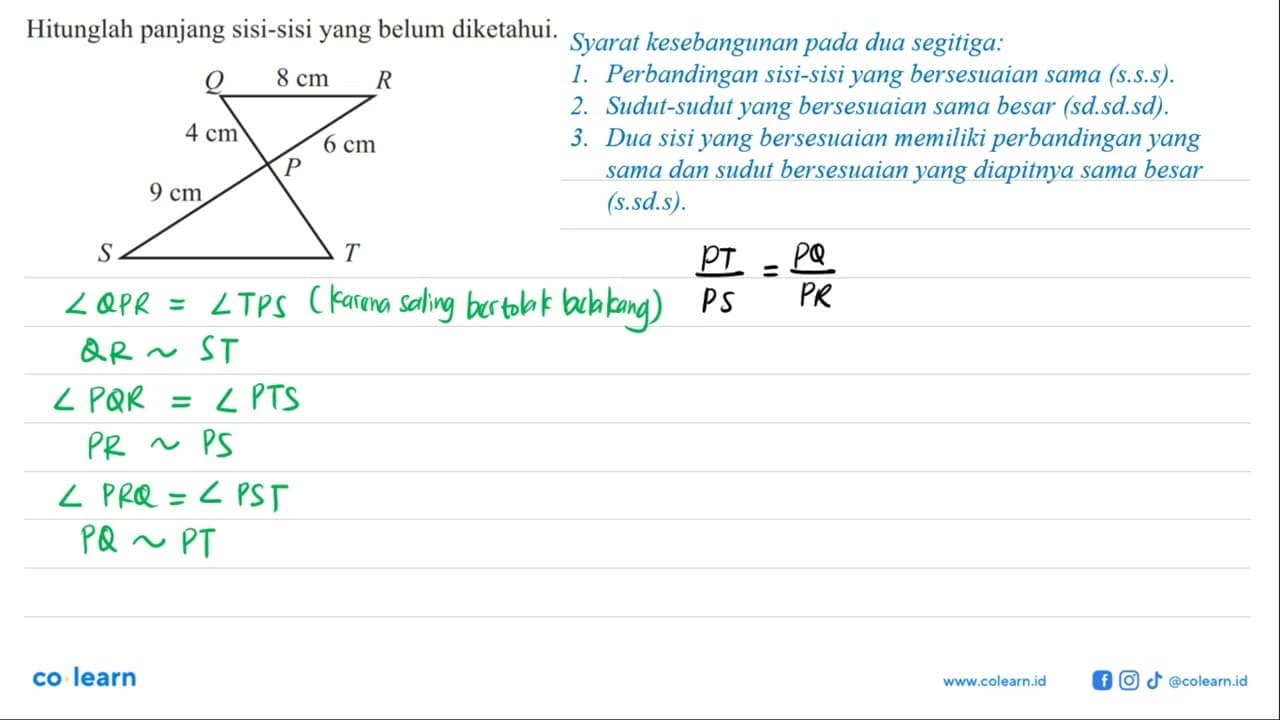 Hitunglah panjang sisi-sisi yang belum diketahui.
Q 8 cm R
4 cm
6 cm
P
9 cm
S T
Syarat kesebangunan pada dua segitiga:
1. Perbandingan sisi-sisi yang bersesuaian sama (s.s.s).
2. Sudut-sudut yang bersesuaian sama besar (sd.sd.sd).
3. Dua sisi yang bersesuaian memiliki perbandingan yang
sama dan sudut bersesuaian yang diapitnya sama besar
(s.sd.s).
PT/PS = PQ/PR
∠QPR = ∠TPS (karena saling bertolak belakang)
QR ~ ST
∠PQR = ∠PTS
PR ~ PS
∠PRQ = ∠PST
PQ ~ PT
co learn
www.colearn.id
@colearn.id